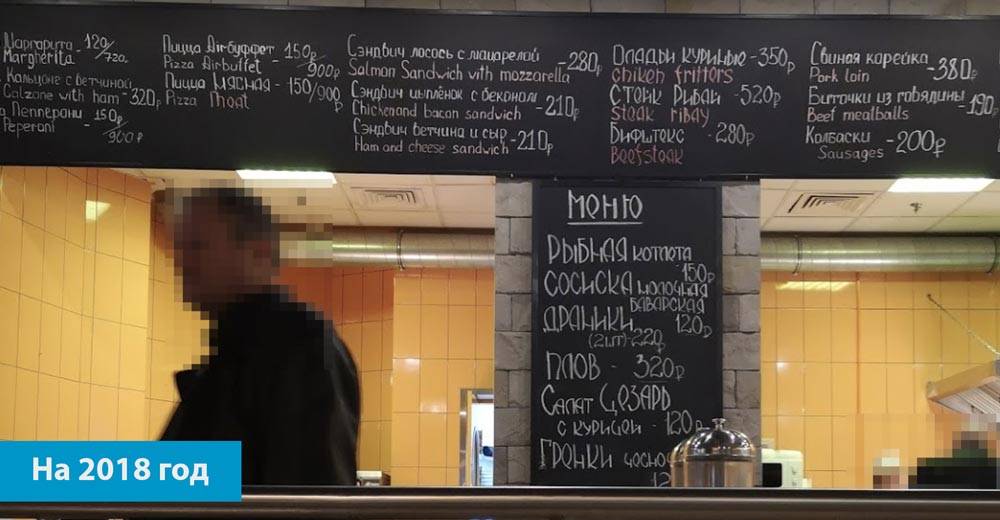 Маргарита - 120/720
Margherita
Кальцоне с ветчиной
Calzone with ham 320р
Пепперони 150р/900р
Peperoni
Пицца Airбуффет 150р/900р
Pizza Airbuffet
Пицца Мясная - 150/900р
Pizza meat
Сэндвич лосось с мацарелой - 280р
Salmon Sandwich with mozzarella
Сэндвич цыплёнок с беконом - 210р
Chicken and bacon sandwich
Сэндвич ветчина и сыр - 210р
Ham and cheese sandwich
Оладьи куриные - 350р
Chiken fritters
Стейк Рибай - 520р
Steak ribay
Бифштекс - 280р
Beefsteak
Свиная корейка - 380р
Pork loin
Биточки из говядины - 190р
Beef meatballs
Колбаски - 200р
Sausages
Меню
Рыбная котлета
150р
Сосиска молочная
баварская
120р
Драники
(2шт)-220
Плов - 320р
Салат Цезарь
с курицей - 120р
Гренки
На 2018 год